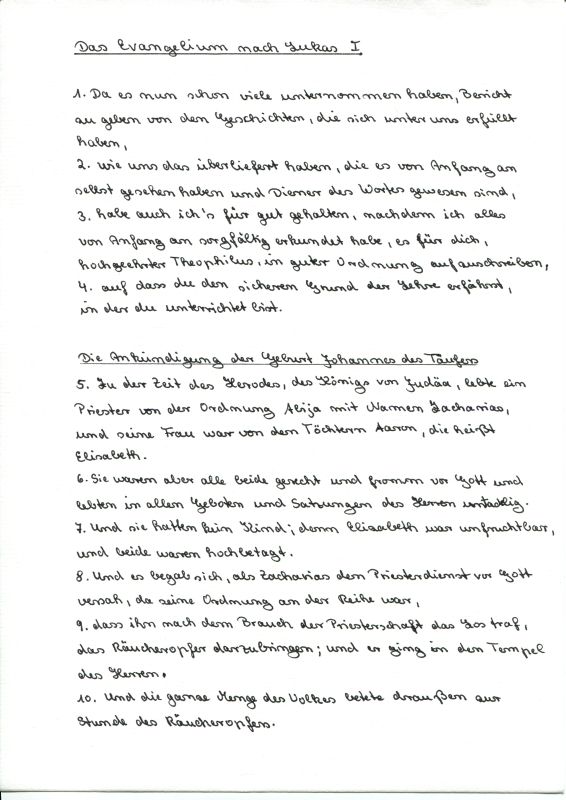 Das Evangelium nach Lukas I
1. Da es nun schon viele unternommen haben, Bericht
zu geben von den Geschichten, die sich unter uns erfüllt
haben,
2. wie uns das überliefert haben, die es von Anfang an
selbst gesehen haben und Diener des Wortes gewesen sind,
3. habe auch ich's für gut gehalten, nachdem ich alles
von Anfang an sorgfältig erkundet habe, es für dich,
hochgeehrter Theophilus, in guter Ordnung aufzuschreiben,
4. auf dass du den sicheren Grund der Lehre erfährst,
in der du unterrichtet bist.
Die Ankündigung der Geburt Johannes des Täufers
5. Zu der Zeit des Herodes, des Königs von Judäa, lebte ein
Priester von der Ordnung Abija mit Namen Zacharias,
und seine Frau war von den Töchtern Aaron, die heißt
Elisabeth.
6. Sie waren aber alle beide gerecht und fromm vor Gott und
lebten in allen Geboten und Satzungen des Herren untadelig.
7. Und sie hatten kein Kind; denn Elisabeth war unfruchtbar,
und beide waren hochbetagt.
8. Und es begab sich, als Zacharias den Priesterdienst vor Gott
versah, da seine Ordnung an der Reihe war,
9. dass ihn nach dem Brauch der Priesterschaft das Los traf,
das Räucheropfer darzubringen; und er ging in den Tempel
des Herren.
10. Und die ganze Menge des Volkes betete draußen zur
Stunde des Räucheropfers.